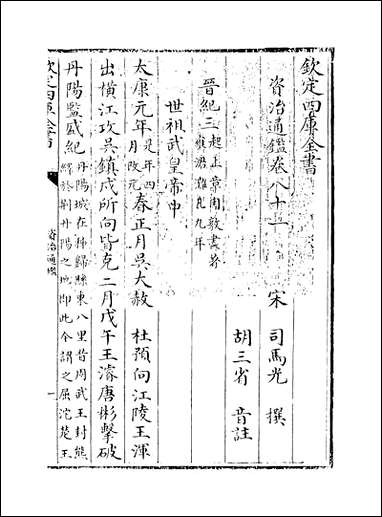 欽定四庫全書
資治通鑑卷八十一
宋 司馬光 撰
胡三省 音註
晉紀三
起上章困敦盡著
雍涒灘凡九年
世祖武皇帝中
太康元年
是年四
月改元
春正月吳大赦 杜預向江陵王渾
出橫江攻吳鎮戍所向皆克二月戊午王濬唐彬擊破
丹陽監盛紀
丹陽城在秭歸縣東八里昔周武王封熊
繹於荆丹陽之地即此今謂之屈沱楚王
欽定四庫全書
資治通鑑
一